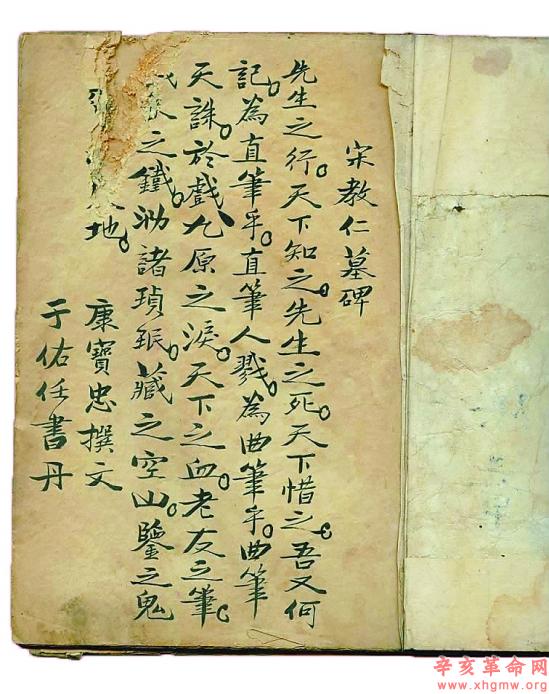 宋教仁墓碑
先生之行。天下知之。先生之死。天下惜之。吾又何
記。為直筆乎。直筆人戮。為曲筆乎。曲筆
天誅。於戲九原之淚。天下之血。老友之筆。
之鐵。泐諸瑱珉。藏之空山。鑒之鬼
地。
康寶忠撰文
于佑任書丹
辛亥革命网
www.xhgmw.org